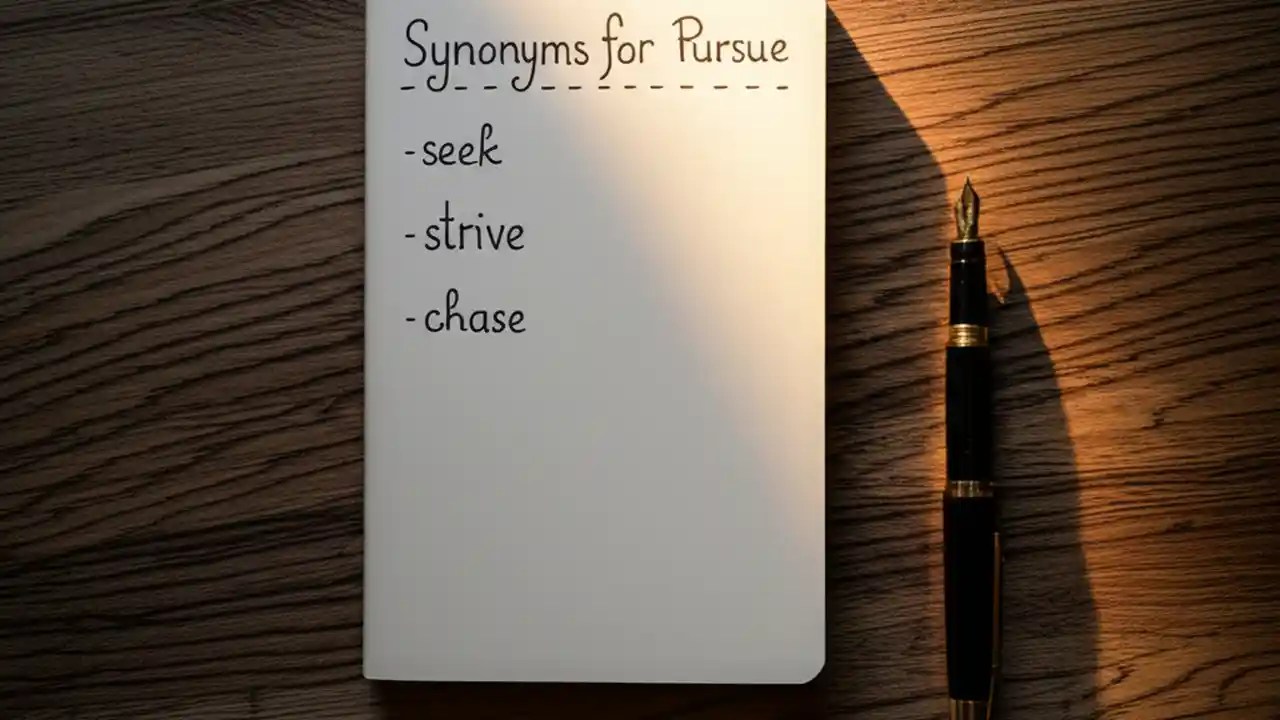 Synonyms for Pursue
- seek
- strive
- chase